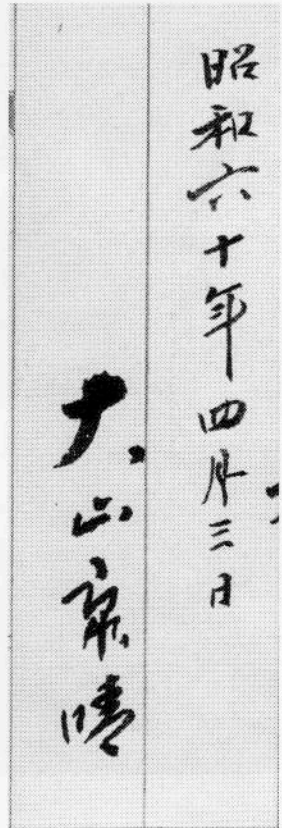 昭和六十年四月三日
大山康晴